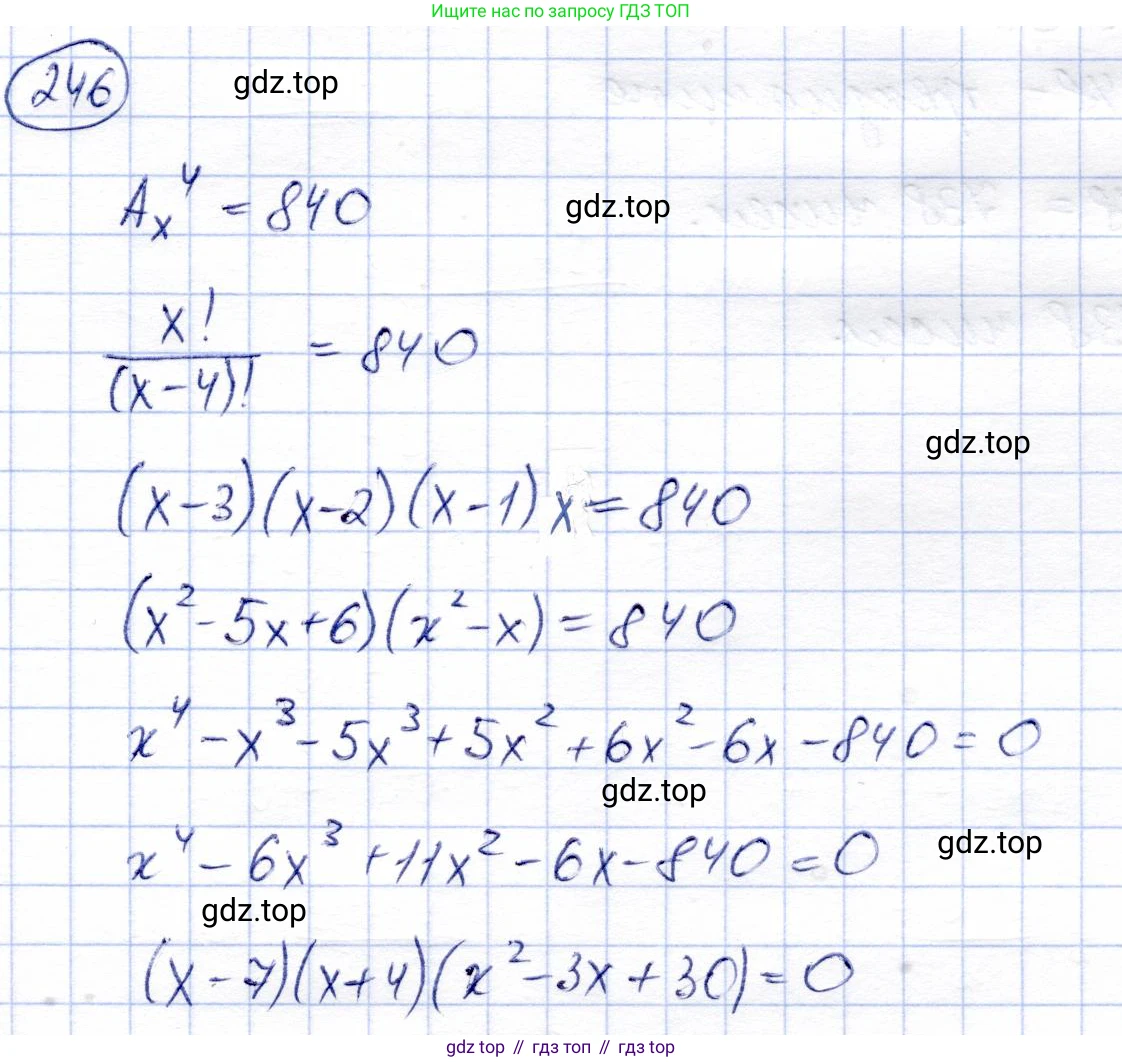 Ищите нас по запросу ГДЗ ТОП
246
gdz.top
A_x^4 = 840
gdz.top
x! / (x-4)! = 840
gdz.top
(x-3)(x-2)(x-1)x = 840
(x²-5x+6)(x²-x) = 840
x⁴-x³-5x³+5x²+6x²-6x-840=0
gdz.top
x⁴-6x³+11x²-6x-840=0
gdz.top
gdz.top
(x-7)(x+4)(x²-3x+30)=0
gdz top // гдз топ // gdz top